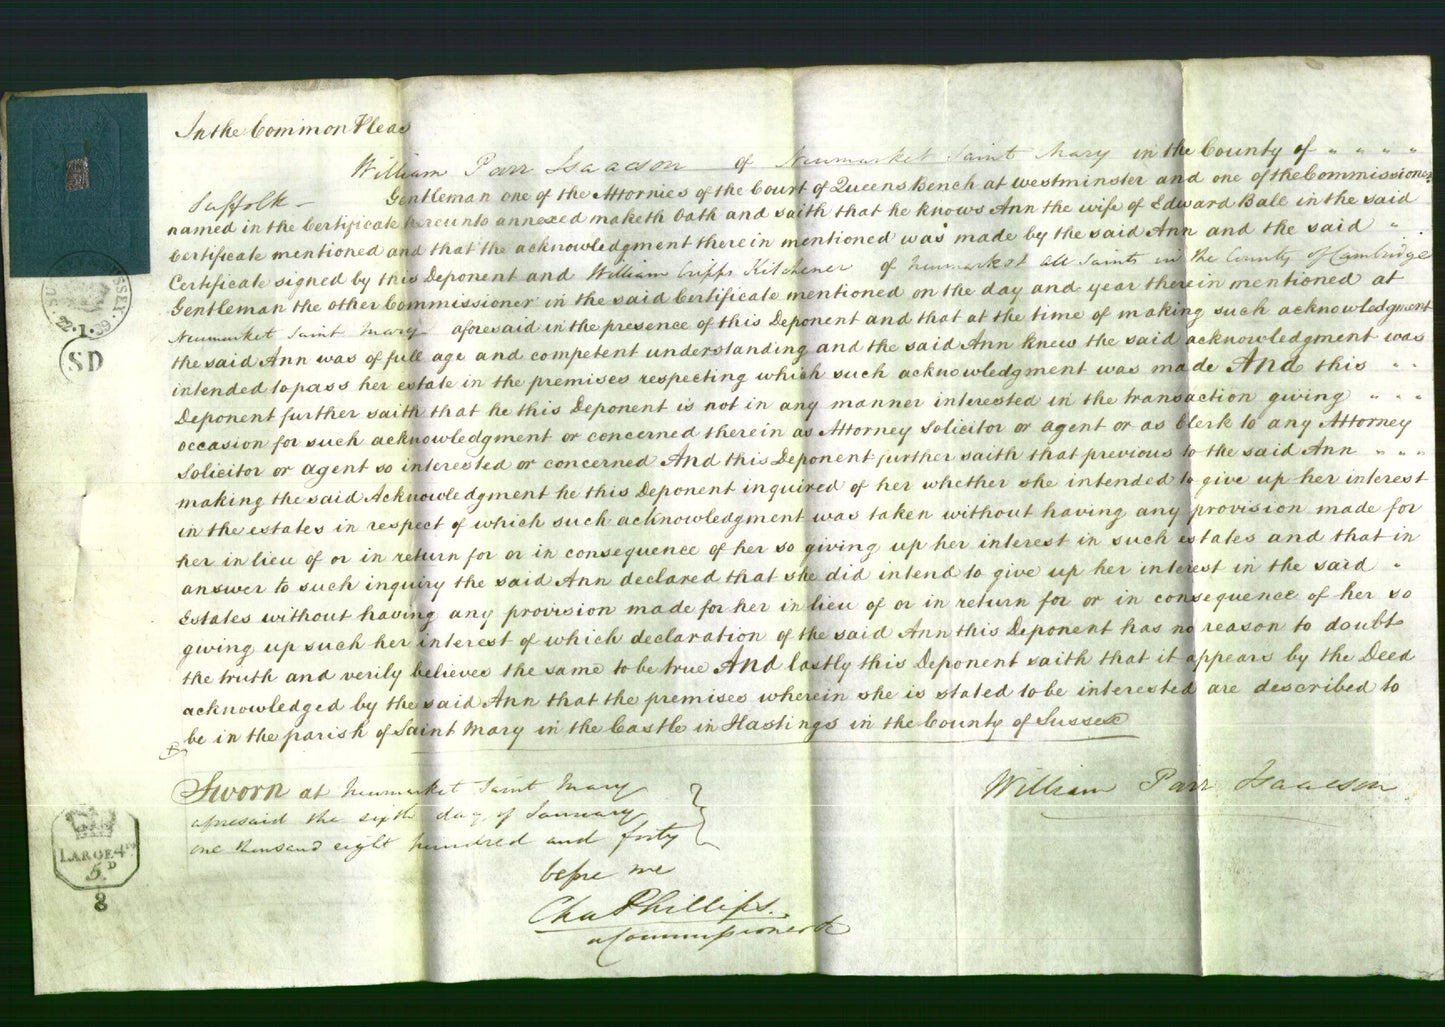 In the Common Pleas
William Parr Isaacson of Newmarket Saint Mary in the County of " " " "
Suffolk Gentleman one of the Attornies of the Court of Queens Bench at westminster and one of the Commissioners
named in the Certificate hereunto annexed maketh Oath and saith that he knows Ann the wife of Edward Ball in the said
Certificate mentioned and that the acknowledgment therein mentioned was made by the said Ann and the said "
Certificate signed by this Deponent and William Cripps Kitchener of Newmarket All Saints in the County of Cambridge
Gentleman the other Commissioner in the said Certificate mentioned on the day and year therein mentioned at
Newmarket Saint Mary aforesaid in the presence of this Deponent and that at the time of making such acknowledgment
the said Ann was of full age and competent understanding and the said Ann knew the said acknowledgment was
intended to pass her estate in the premises respecting which such acknowledgment was made And this " "
Deponent further saith that he this Deponent is not in any manner interested in the transaction giving " " "
occasion for such acknowledgment or concerned therein as Attorney Solicitor or agent or as Clerk to any Attorney
Solicitor or agent so interested or concerned And this Deponent further saith that previous to the said Ann " " "
making the said Acknowledgment he this Deponent inquired of her whether she intended to give up her interest
in the estates in respect of which such acknowledgment was taken without having any provision made for
her in lieu of or in return for or in consequence of her so giving up her interest in such estates and that in
answer to such inquiry the said Ann declared that she did intend to give up her interest in the said "
Estates without having any provision made for her in lieu of or in return for or in consequence of her so
giving up such her interest of which declaration of the said Ann this Deponent has no reason to doubt
the truth and verily believes the same to be true And lastly this Deponent saith that it appears by the Deed
acknowledged by the said Ann that the premises wherein she is stated to be interested are described to
be in the parish of Saint Mary in the Castle in Hastings in the County of Sussex
Sworn at Newmarket Saint Mary
aforesaid the sixth day of January
one thousand eight hundred and forty
before me
Chas Phillips.
a Commissioner &c
William Parr Isaacson
22·1·39
SD
LARGE 4to
5D
8